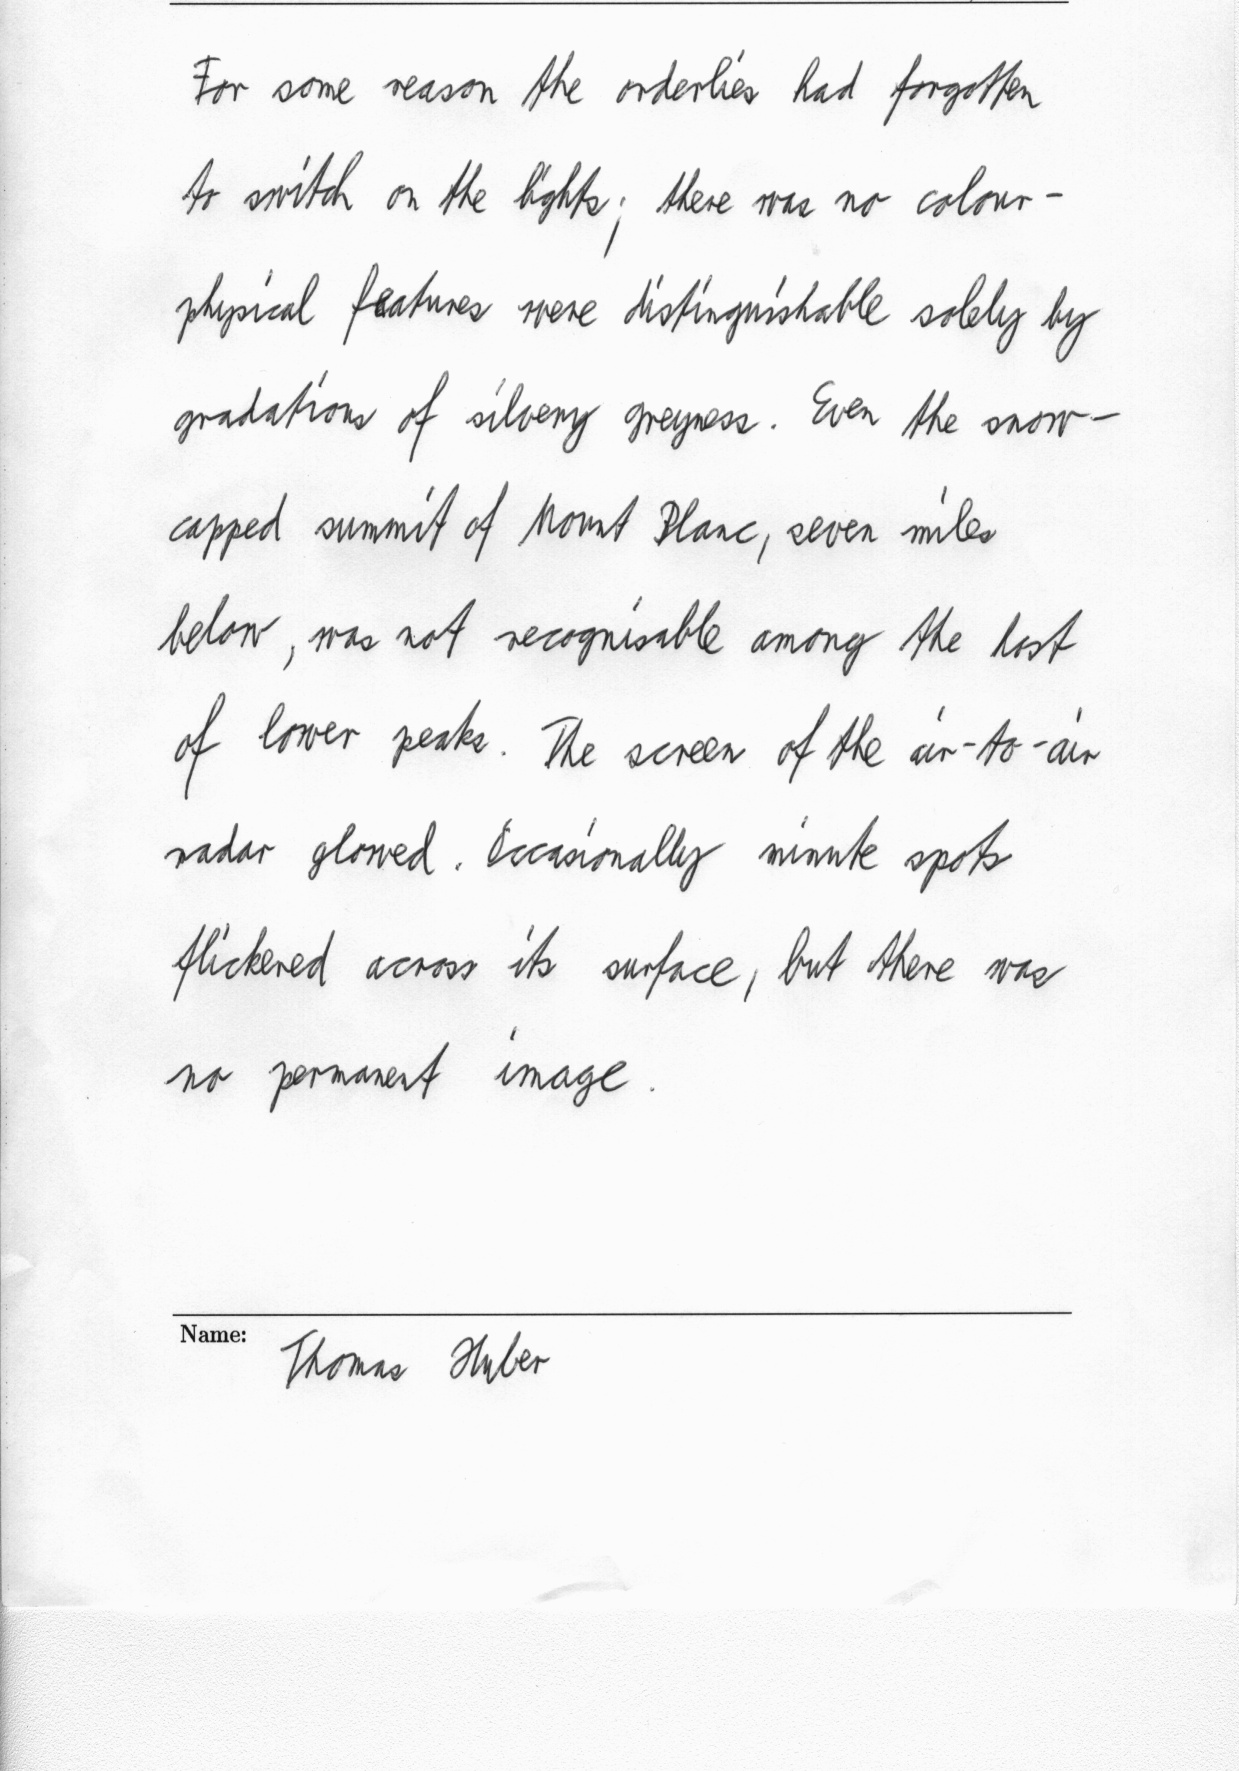 For some reason the orderlies had forgotten
to switch on the lights; there was no colour -
physical features were distinguishable solely by
gradations of silvery greyness. Even the snow-
capped summit of Mount Blanc, seven miles
below, was not recognisable among the host
of lower peaks. The screen of the air-to-air
radar glowed. Occasionally minute spots
flickered across its surface, but there was
no permanent image.
Name: Thomas Huber